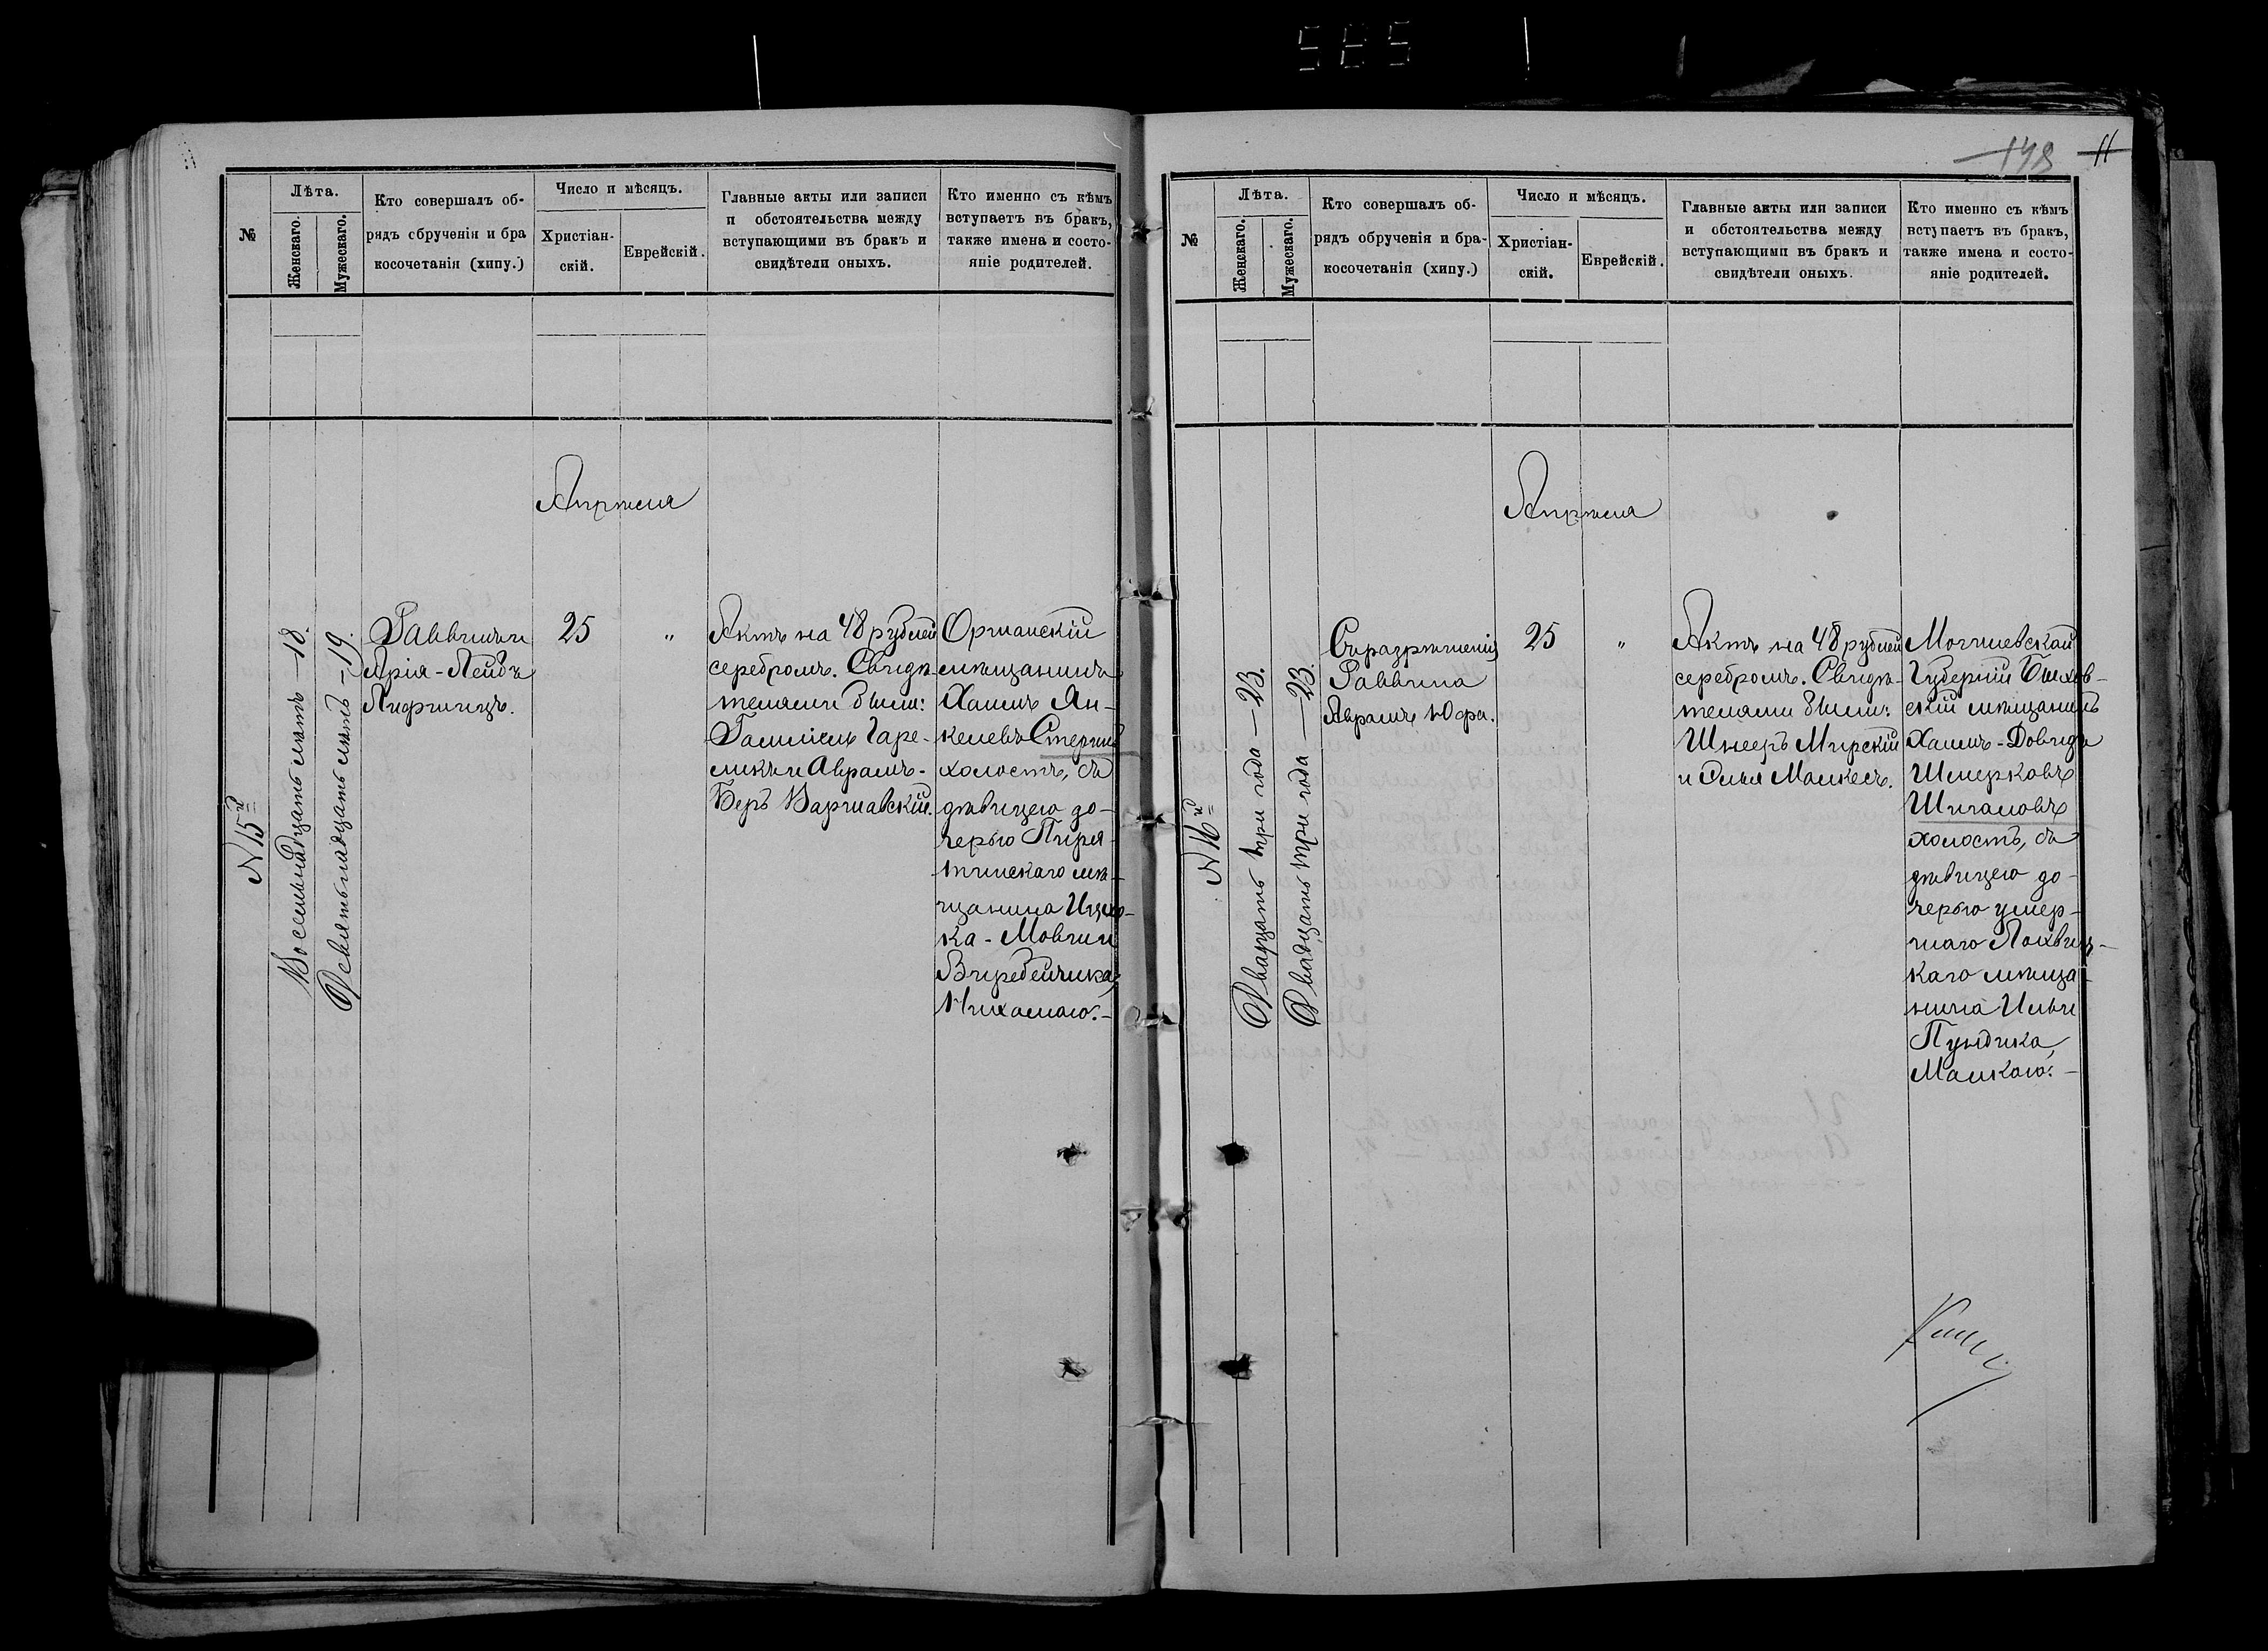 585
148 11
№
Лѣта.
Женскаго.
Мужескаго.
Кто совершалъ об-
рядъ обрученія и бра
косочетанія (хипу.)
Число и мѣсяцъ.
Христіан-
скій.
Еврейскій.
Главные акты или записи
и обстоятельства между
вступающими въ бракъ и
свидѣтели оныхъ.
Кто именно съ кѣмъ
вступаетъ въ бракъ,
также имена и состо-
яніе родителей.
Апрѣля
N 15й
Восемьнадцать лѣтъ — 18.
Девятьнадцать лѣтъ — 19.
Раввинъ
Арія-Лейбъ
Лифшицъ.
25
"
Актъ на 48 рублей
серебромъ. Свидѣ-
телями были:
Гамшiель Гаре-
ликъ и Аврамъ-
Беръ Варшавскій.
Оршанскій
мѣщанинъ
Хаимъ Ян-
келевъ Стерин
холостъ, съ
дѣвицею до-
черью Пиря-
тинскаго мѣ-
щанина Ицко-
ка-Мовши
Вередейчика,
Михамою.—
№
Лѣта.
Женскаго.
Мужескаго.
Кто совершалъ об-
рядъ обрученія и бра-
косочетанія (хипу.)
Число и мѣсяцъ.
Христіан-
скій.
Еврейскій.
Главные акты или записи
и обстоятельства между
вступающими въ бракъ и
свидѣтели оныхъ.
Кто именно съ кѣмъ
вступаетъ въ бракъ,
также имена и состо-
яніе родителей.
Апрѣля
N 16й
Двадцать три года — 23.
Двадцать три года — 23.
Съ разрѣшенія
Раввина
Аврамъ Юфа.
25
"
Актъ на 48 рублей
серебромъ. Свидѣ-
телями были:
Шнееръ Мирскій
и Илья Малкесъ.
Могилевской
Губерніи Быхов-
скій мѣщанинъ
Хаимъ-Довидъ
Шмерковъ
Шигаловъ
холостъ, съ
дѣвицею до-
черью умер-
шаго Лохвиц-
каго мѣща
нина Ильи
Пундика,
Малкою.—